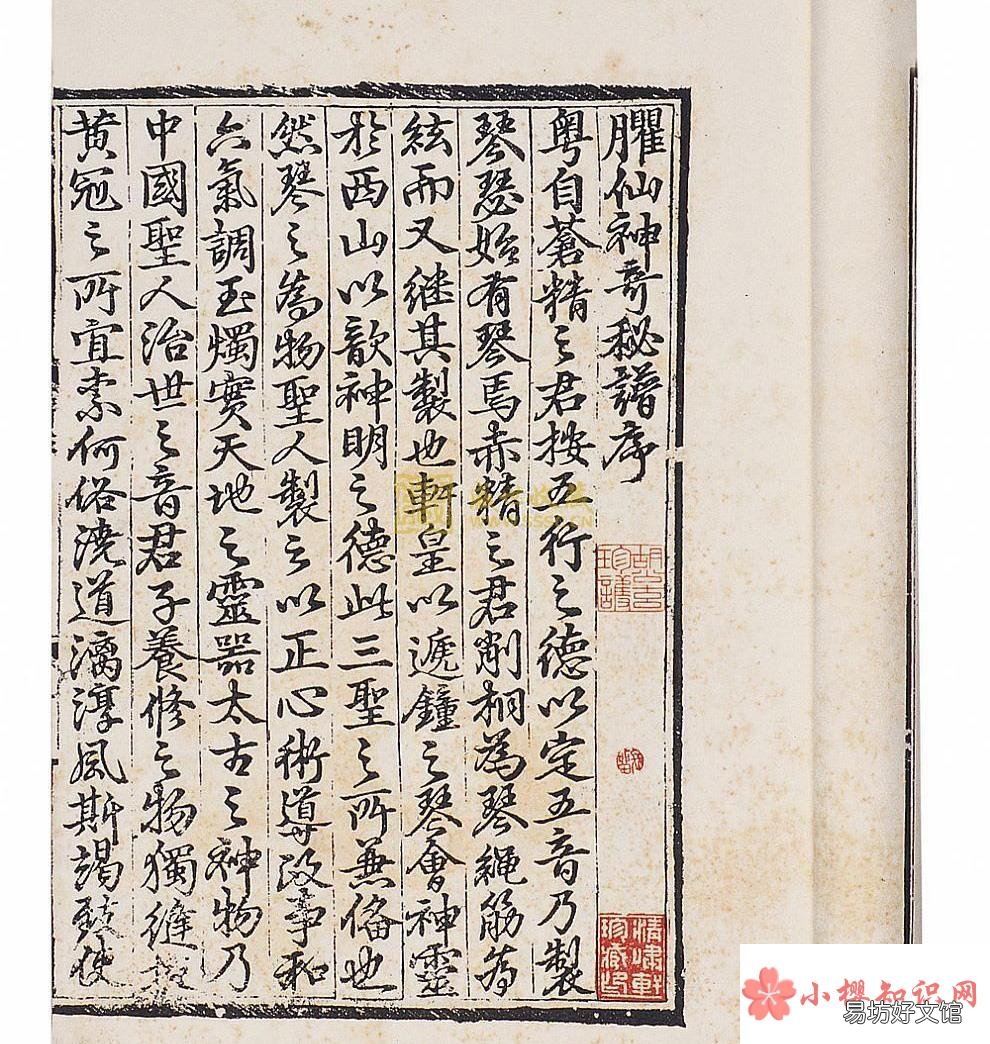 臞仙神奇秘譜序
粵自蒼精之君按五行之德以定五音乃製
琴瑟始有琴焉赤精之君削桐為琴繩筋為
絃而又継其製也軒皇以遞鐘之琴會神靈
於西山以歆神明之德此三聖之所兼俻也
然琴之為物聖人製之以正心術導政事和
六氣調玉燭實天地之靈器太古之神物乃
中國聖人治世之音君子養修之物獨縫掖
黃冠之所宜柰何俗澆道漓淳風斯竭致使
小樱知识网
易坊好文馆